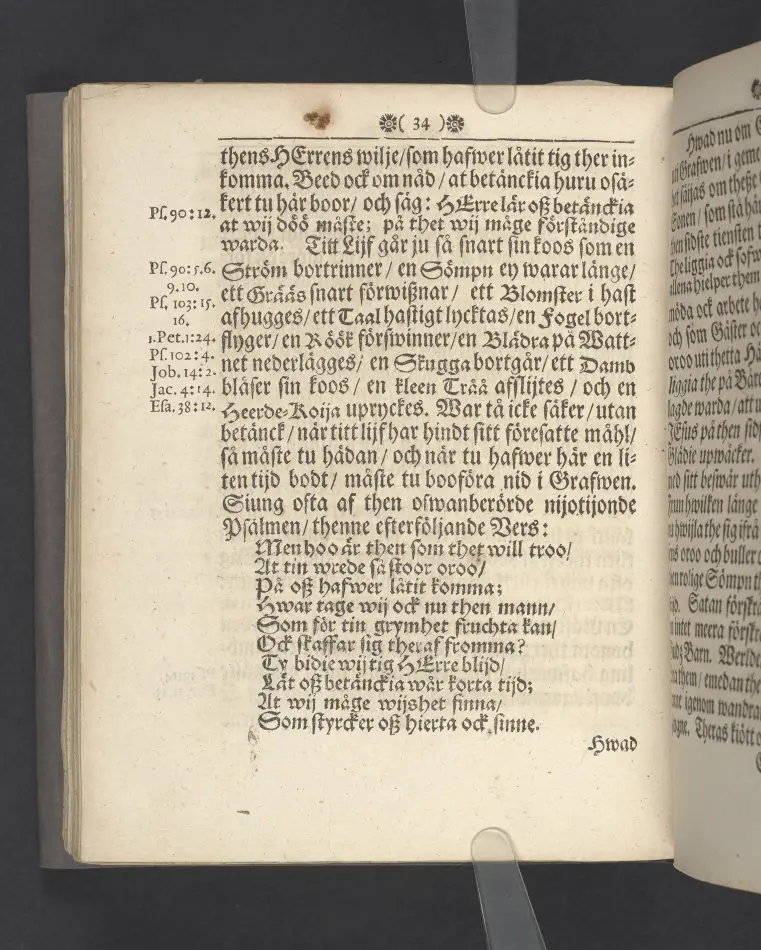 ❁( 34 )❁
thens HErrens wilje/som hafwer låtit tig ther in-
komma. Beed ock om nåd / at betänckia huru osä-
kert tu här boor/ och säg: HErre lär oß betänckia
Ps. 90:12.
at wij döö måste; på thet wij måge förståndige
warda. Titt Lijf går ju så snart sin koos som en
Ps. 90:5.6.
Ström bortrinner / en Sömpn ey warar länge/
9.10.
ett Grääs snart förwißnar / ett Blomster i hast
Ps. 103:15.
16.
afhugges/ett Taal hastigt lycktas/en Fogel bort-
1.Pet.1:24.
flyger/en Röök förswinner/en Blädra på Watt-
Ps. 102:4.
net nederlägges/ en Skugga bortgår/ett Damb
Job. 14:2.
blåser sin koos / en kleen Tråå afslijtes / och en
Jac. 4:14.
Esa. 38:12.
Heerde-Koija upryckes. War tå icke säker/utan
betänck/när titt lijf har hindt sitt föresatte måhl/
så måste tu hädan/och när tu hafwer här en li-
ten tijd bodt/ måste tu booföra nid i Grafwen.
Siung ofta af then ofwanberörde nijotijonde
Psalmen/thenne efterföljande Vers:
Men hoo är then som thet will troo/
At tin wrede så stoor oroo/
På oß hafwer låtit komma;
Hwar tage wij ock nu then mann/
Som för tin grymhet fruchta kan/
Ock skaffar sig theraf fromma?
Ty bidie wij tig HErre blijd/
Låt oß betänckia wår korta tijd;
At wij måge wijshet finna/
Som styrcker oß hierta ock sinne.
Hwad
Hwad nu om
Grafwen/ i geme
säijas om theße
Sonen / som stå här
sidste tiensten
the liggia ock sofw
allena hielper them
möda ock arbete
och som Gäster oc
oroo uti thetta
liggia the på Båre
lagde warda/att
JEsus på then sid
Glädie upwäcker.
sitt beswär uth
hwilken länge
hwijla the sig ifrå
oroo och buller
rolige Sömpn
Satan förskr
intet meera förskr
Gudz Barn. Werlde
them/ emedan the
igenom wandra
Theras kiött